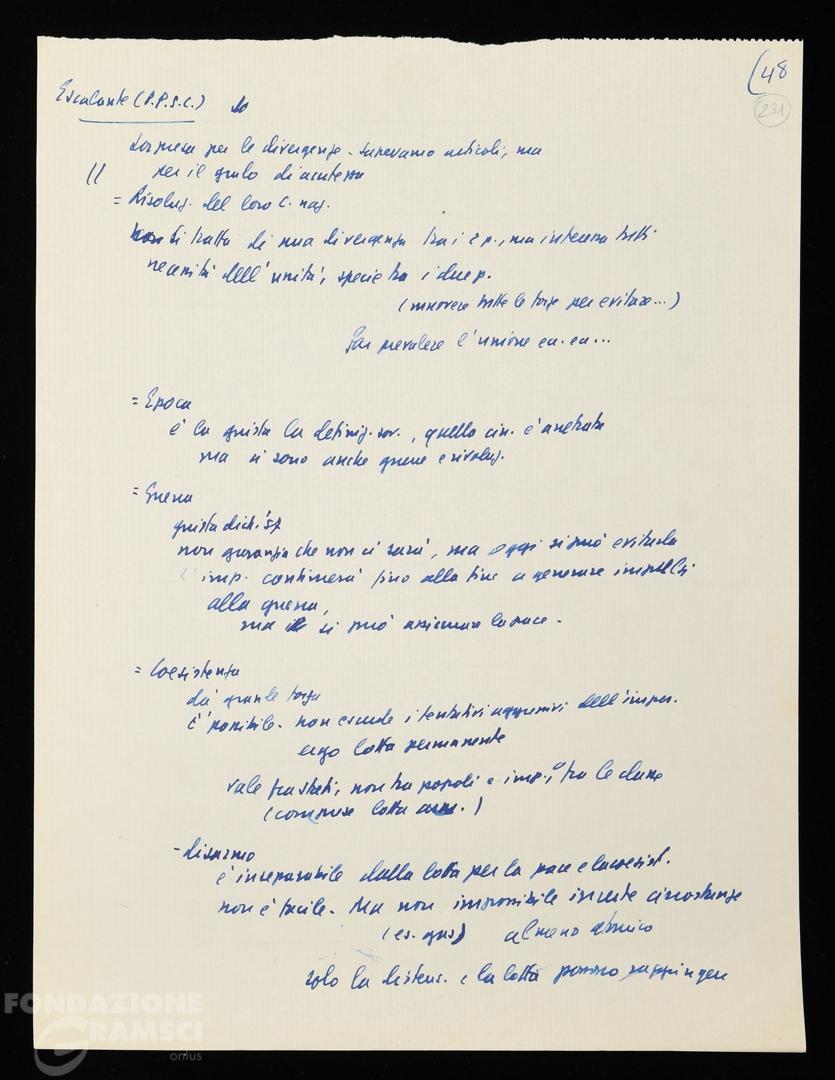 (48
231
Escalante (P.P.S.C.)
Sorpresa per le divergenze. Sapevamo articoli, ma
// per il grado di acutezza
= Risoluz. del loro C. naz.
non si tratta di una divergenza tra i 2 p., ma interessa tutti
necessità dell'unità, specie tra i due p.
(muovere tutte le forze per evitare...)
Far prevalere l'unione
= Epoca
è la giusta la definiz. sov., quella cin. è arretrata
ma vi sono anche guerre e rivoluz.
= Guerra
giusta dich.
non garanzia che non ci sarà, ma oggi si può evitarla
L'imp. continuerà fino alla fine a generare impulsi
alla guerra,
ma si può assicurare la pace.
= Coesistenza
dà grande forza
È possibile. non esclude i tentativi aggressivi dell'imper.
ergo lotta permanente
vale fra stati, non tra popoli e imp. o tra le classi
(compresa lotta arm.)
- disarmo
è inseparabile dalla lotta per la pace e la coesist.
non è facile. Ma non impossibile in certe circostanze
(es. gas) almeno atomico
solo la distens. e la lotta possono raggiungere
FONDAZIONE
GRAMSCI
onlus